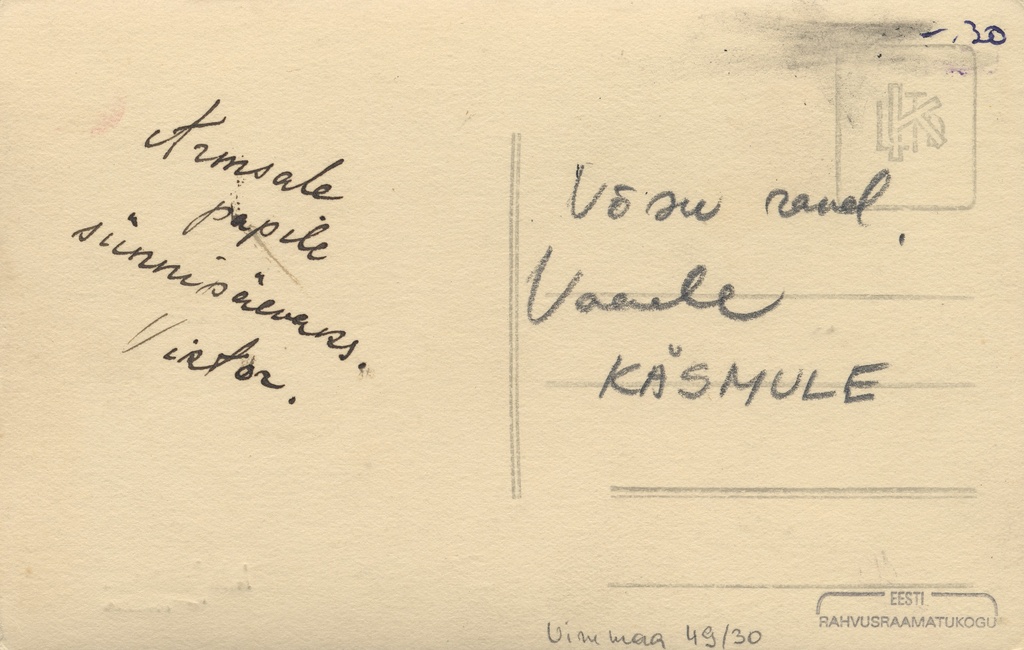 -.30
Armsale
papile
sünnipäevaks.
Victor.
Võsu rand.
Vaade
KÄSMULE
EESTI
RAHVUSRAAMATUKOGU
Virumaa 49/30